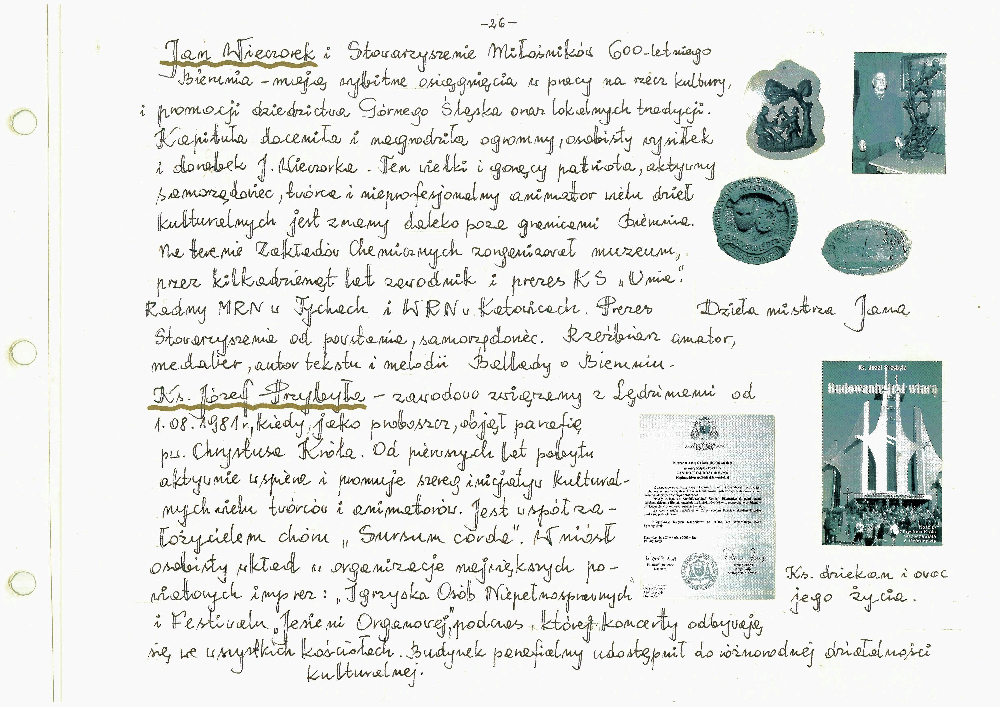 -26-
Jan Wieczorek i Stowarzyszenie Miłośników 600-letniego
Bierunia - mają wybitne osiągnięcia w pracy na rzecz kultury,
i promocji dziedzictwa Górnego Śląska oraz lokalnych tradycji.
Kapituła doceniła i nagrodziła ogromny, osobisty wysiłek
i dorobek J. Wieczorka. Ten wielki i gorący patriota, aktywny
samorządowiec, twórca i nieprofesjonalny animator wielu dzieł
kulturalnych jest znany daleko poza granicami Bierunia.
Na terenie Zakładów Chemicznych zorganizował muzeum,
przez kilkadziesiąt lat zawodnik i prezes KS „Unia".
Radny MRN w Tychach i WRN w Katowicach. Prezes
Stowarzyszenia od powstania, samorządowiec. Rzeźbiarz amator,
medalier, autor tekstu i melodii Ballady o Bieruniu.
Dzieła mistrza Jana
Ks. Józef Przybyła - zawodowo związany z Lędzinami od
1.08.1981r., kiedy, jako proboszcz, objął parafię
pw. Chrystusa Króla. Od pierwszych lat pobytu
aktywnie wspiera i promuje szereg inicjatyw kultural-
nych wielu twórców i animatorów. Jest współza-
łożycielem chóru „Sursum corda". Wniósł
osobisty wkład w organizacje największych po-
wiatowych imprez: „Igrzyska Osób Niepełnosprawnych"
i Festiwalu „Jesieni Organowej", podczas której koncerty odbywają
się we wszystkich kościołach. Budynek parafialny udostępnił do różnorodnej działalności
kulturalnej.
Budowaniejest wiarą
Ks. dziekan i owoc
jego życia.